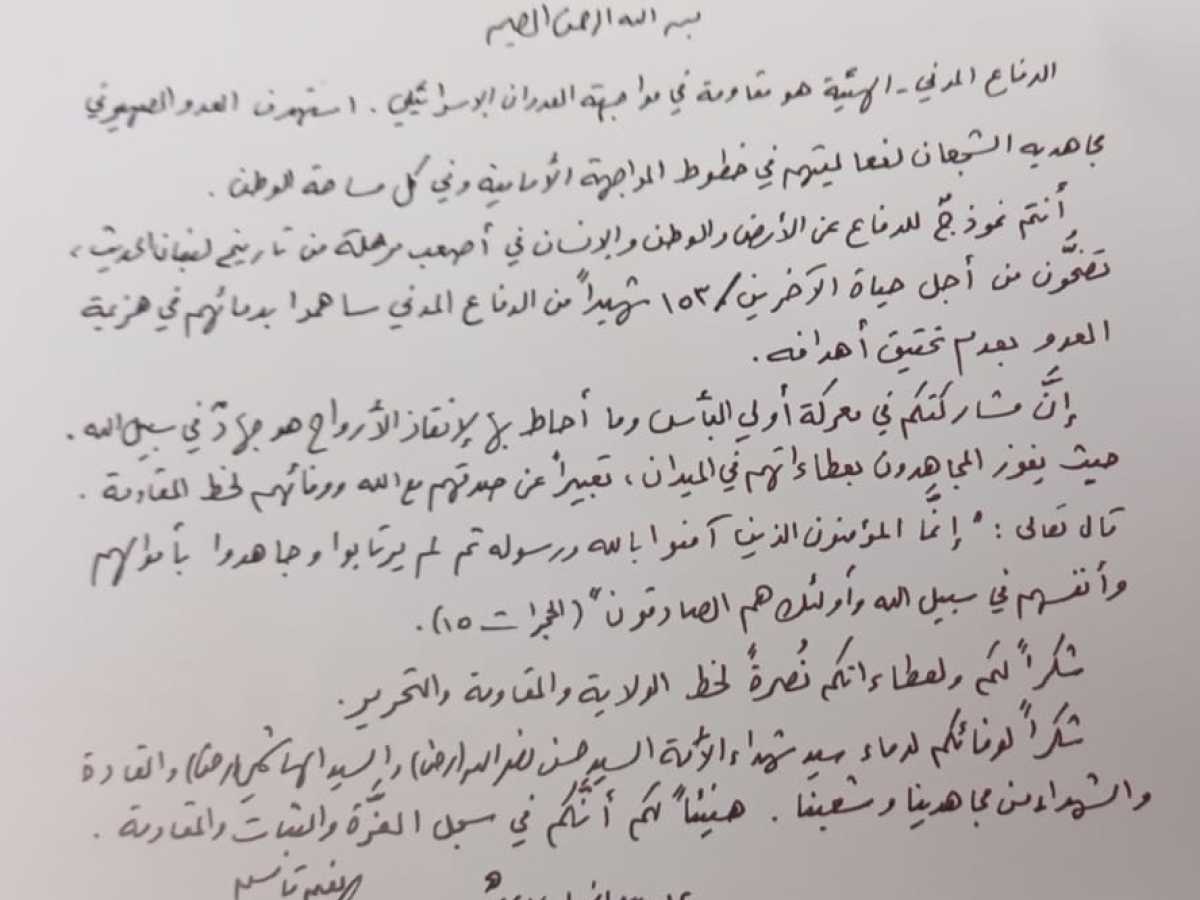 بسم الله الرحمن الرحيم
الدفاع المدني - الهيئة هو مقاومة في مواجهة العدوان الإسرائيلي. استهدف العدو الصهيوني
مجاهديه الشجعان لفعاليتهم في خطوط المواجهة الأمامية وفي كل ساحة الوطن.
أنتم نموذجٌ للدفاع عن الأرض والوطن والإنسان في أصعب مرحلة من تاريخ لبنان الحديث،
تضحُّون من أجل حياة الآخرين/ ١٥٣ شهيداً من الدفاع المدني ساهموا بدمائهم في هزيمة
العدو بعدم تحقيق أهدافه.
إنَّ مشاركتكم في معركة أولي البأس وما أحاط بها لإنقاذ الأرواح هو جهادٌ في سبيل الله.
حيث يفوز المجاهدون بعطاءاتهم في الميدان، تعبيراً عن صدقهم مع الله ووفائهم لخط المقاومة.
قال تعالى: "إنَّما المؤمنون الذين آمنوا بالله ورسوله ثم لم يرتابوا وجاهدوا بأموالهم
وأنفسهم في سبيل الله وأولئك هم الصادقون" (الحجرات ١٥).
شكراً لكم ولعطاءاتكم نُصرةً لخط الولاية والمقاومة والتحرير.
شكراً لوفائكم لدماء سيد شهداء الأمة السيد حسن نصر الله (رض) والسيد الهاشمي (رض) والقادة
والشهداء من مجاهدينا وشعبنا. هنيئاً لكم أنَّكم في سجل العزَّة والثبات والمقاومة.
نعيم قاسم